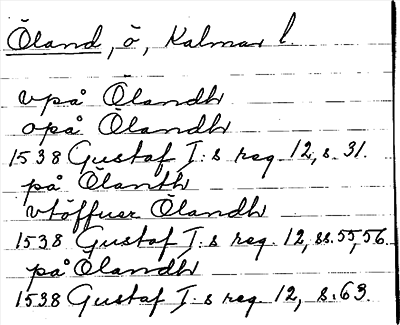 Öland, ö, Kalmar l.
vpå Ölandh
opå Ölandh
1538 Gustaf I:s reg. 12, s. 31.
på Ölanth
vtöffuer Ölandh
1538 Gustaf I:s reg. 12, ss. 55, 56.
på Ölandh
1538 Gustaf I:s reg. 12, s. 63.